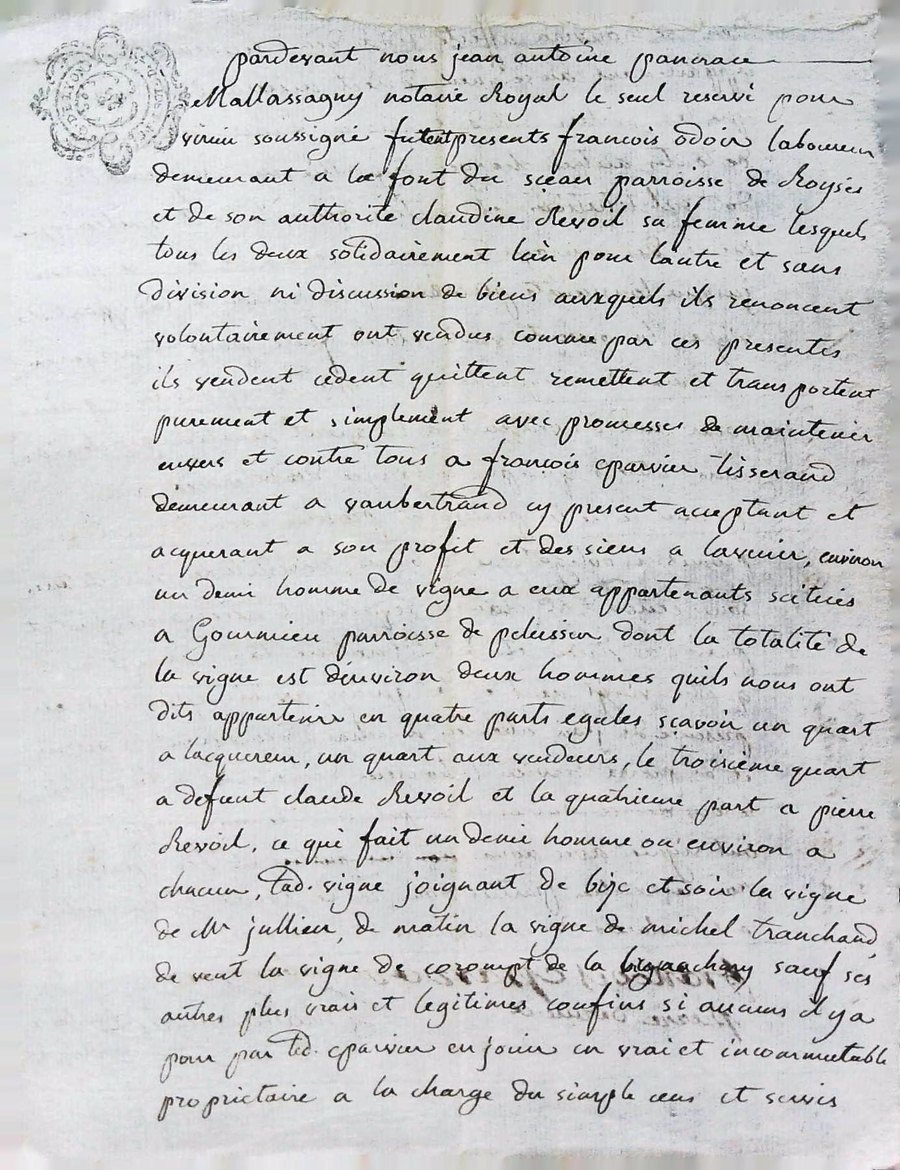 pardevant nous jean antoine pancrace
Mallassagny notaire Royal le seul reservé pour
virieu soussigné furent presents françois odoin laboureur
demeurant a la font du sieau parroisse de Royses
et de son authorité claudine Revoil sa femme lesquels
tous les deux solidairement l'un pour lautre et sans
division ni discussion de biens auxquels ils renoncent
volontairement ont vendus comme par ces presentes
ils vendent cedent quittent remettent et transportent
purement et simplement avec promesses de maintenir
envers et contre tous a françois eparvier tisserand
demeurant a vaubertrand cy present acceptant et
acquerant a son profit et des siens a lavenir, environ
un demi homme de vigne a eux appartenants scitués
a Gourmieu parroisse de pelussin dont la totalité de
la vigne est denviron deux hommes quils nous ont
dits appartenir en quatre parts egales sçavoir un quart
a lacquereur, un quart aux vendeurs, le troisième quart
a defunt claude Revoil et la quatrieme part a pierre
Revoil, ce qui fait un demie homme ou environ a
chacun, lad. vigne joignant de bize et soir la vigne
de Mr jullien, de matin la vigne de michel tranchand
de vent la vigne de corompt de la sauf ses
autres plus vrais et legitimes confins si aucuns il y a
pour par led. eparvier en jouir en vrai et incommutable
proprietaire a la charge du simple cens et servis